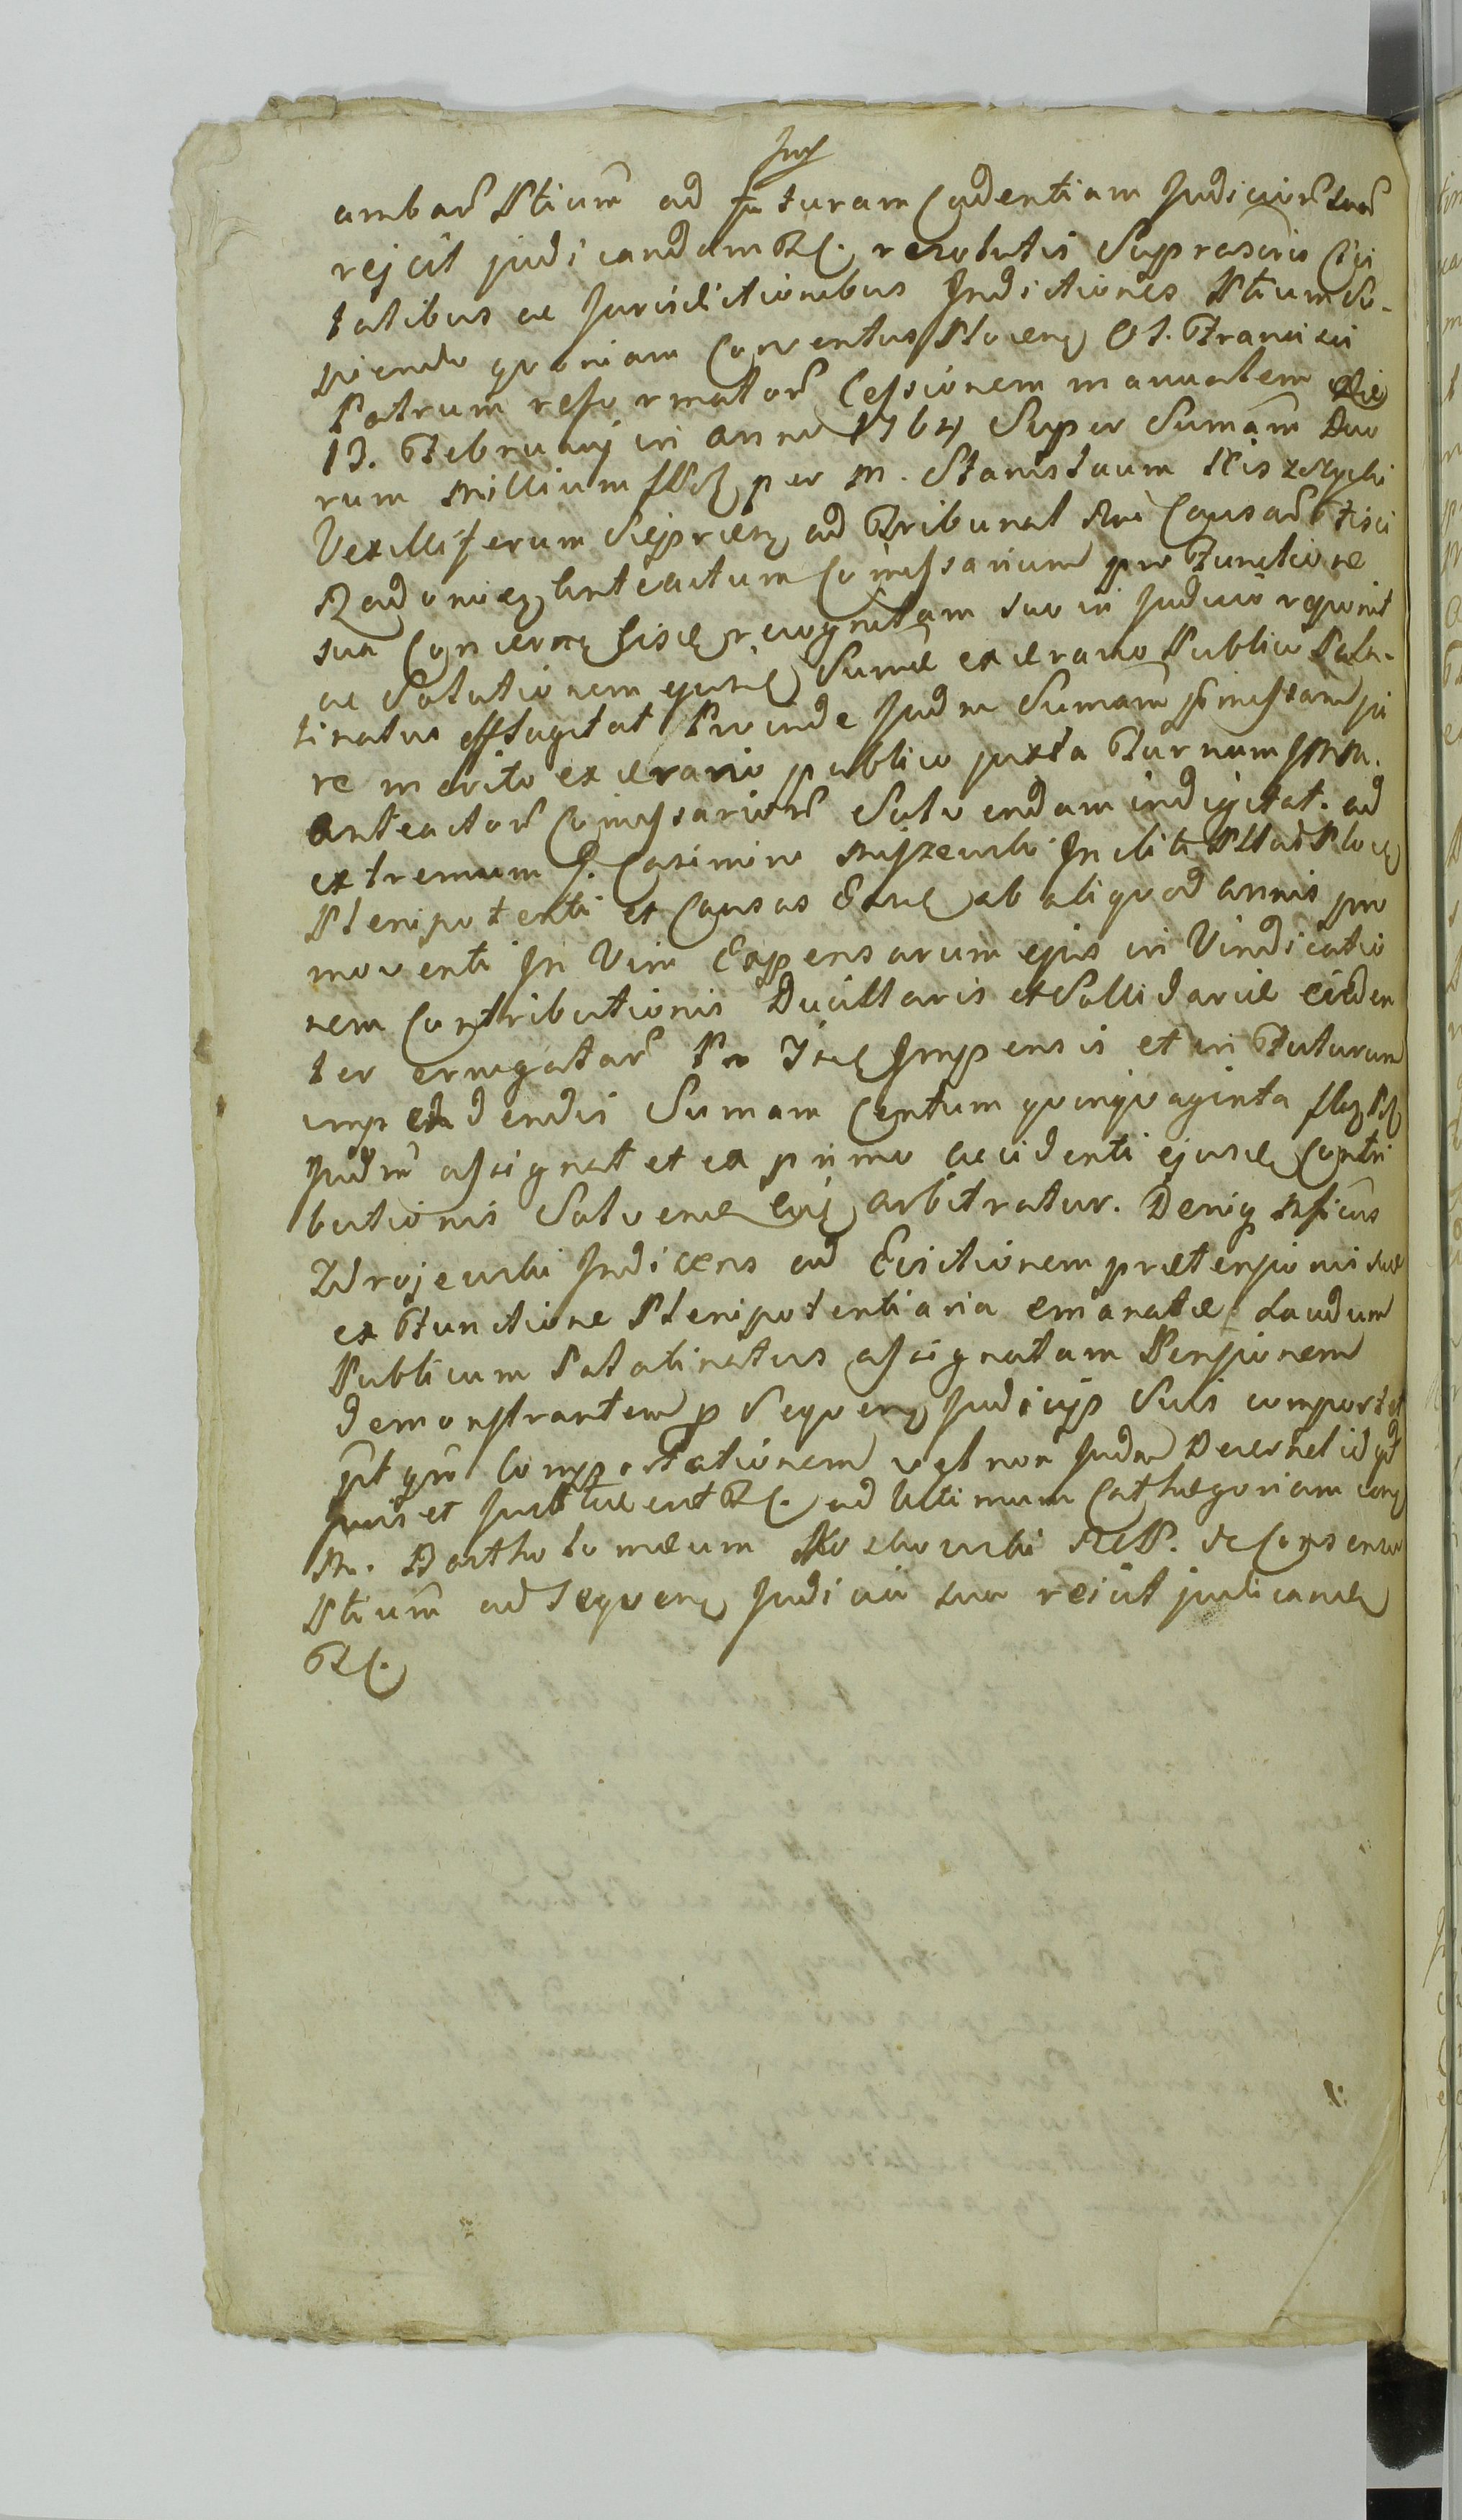 ambar Ptium ad futuram Cadentiam Judicior suor
rejcit judicandam Tl. resolutis Suprascris Cita
tatibus ac Jurisdictionibus Indictiones Ptium So-
piendo quoniam Conventus Plocen Ol. Francisci
Patrum reformator Cessionem manualem die
13. Februarij in anno 1764 Super Sumam Duo
rum Millium flPol per M. Stanislaum Kiszelycki
Vexilliferum Sieprcen ad Tribunal Rni Causar Fisci
Radomien anteactum Comissarium pro Functione
sua Concern Eisd recognitam suo in Judicio reponit
ac Solutionem ejusd Sumae ex aerario Publico Pala-
tinatus efflagitat Proinde Judm Sumam pmissam ju
re merito ex aerario publico juxta Turnum
anteactor Comissarior Solvendam indigitat. ad
extremum G. Casimiro Mijzewski Incliti Pttas Ploc
Plenipotenti et Causas Eand ab aliquod annis pro
moventi In Vim Expensarum ejus in Vindicatio
nem Contributionis Ducillaris et Sollidariae eviden
ter errogatar Pr Isd Impensis et in Futurum
impendendis Sumam Centum quinquaginta flor Pol
Judm assignat et ex primo accidenti ejusd Contri
butionis Solvend Eid arbitratur. Deniq Mficus
Zdrojewski Indicens ad Evictionem praetensionis suae
ex Functione Plenipotentiaria emanatae Laudum
Publicum Palatinatus assignatam Pensionem
demonstrantem p Sequen Judicijs Suis comportet
pt qm Comportationem vel non Judm Decernet id qd
juris et Justitiae erit Tl. ad Ultimum Cathegoriam con
M. Bartholomaeum Kochowski RP. de Consensu
Ptium ad Sequen Judicia sua reicit judicand
Tl.